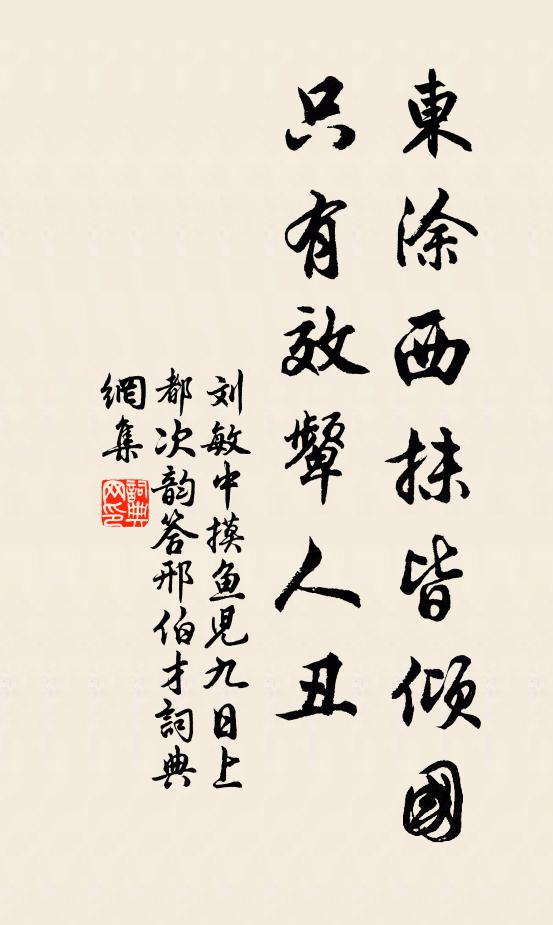 東涂西抹皆傾國
只有效顰人丑
刘敏中摸鱼児九日上
都次韵答邢伯才詞典
網集
詞典網印